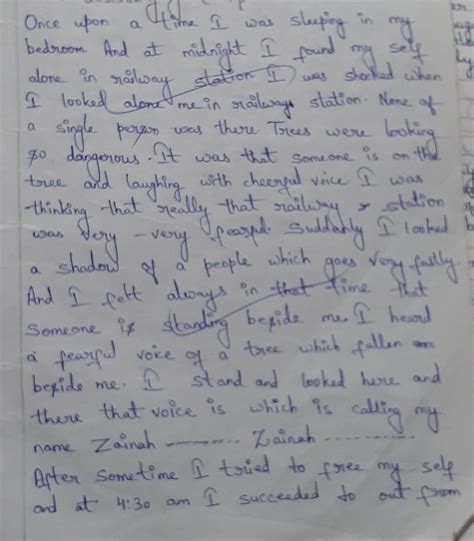 Once upon a time I was sleeping in my
bedroom And at midnight I found my self
alone in railway station I was shocked when
I looked alone me in railways station. None of
a single person was there. Trees were looking
so dangerous. It was that someone is on the
tree and laughing with cheerful voice I was
thinking that really that railway station
was very - very fearful. Suddanly I looked
a shadow of a people which goes very fastly.
And I felt always in that time that
someone is standing beside me. I heard
a fearful voice of a tree which fallen on
beside me. I stand and looked here and
there that voice is which is calling my
name Zainah ------- Zainah ----------
After sometime I tried to free my self
and at 4:30 am I succeeded to out from